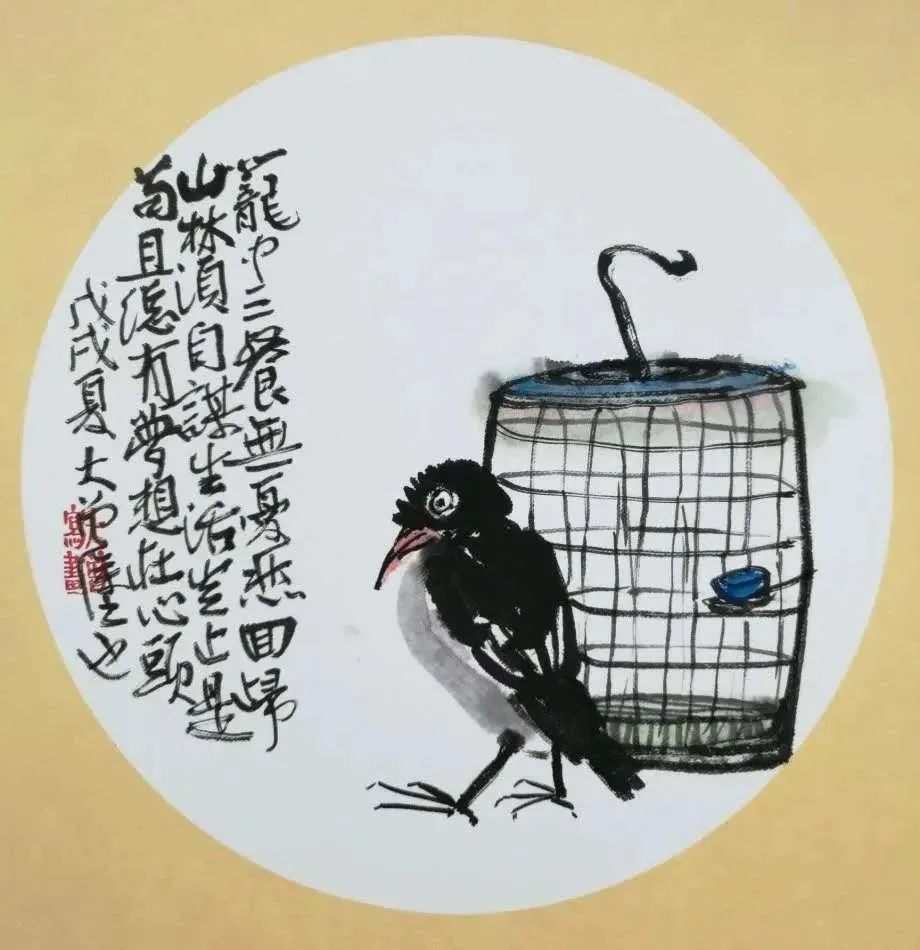 籠中三餐無憂愁回歸
山林須自謀生活豈止是
苟且還有夢想在心頭
戊戌夏大也